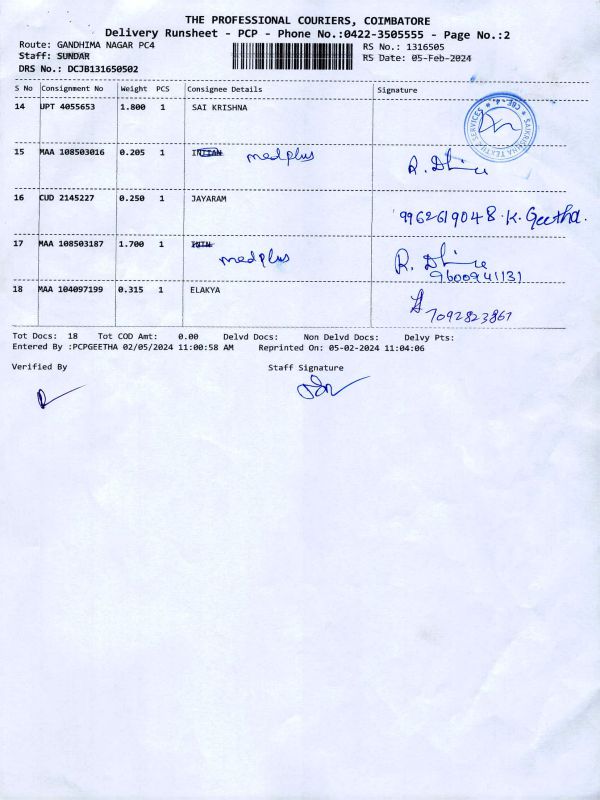 THE PROFESSIONAL COURIERS, COIMBATORE
Delivery Runsheet - PCP - Phone No.:0422-3505555 - Page No.:2
Route: GANDHIMA NAGAR PC4 RS No.: 1316505
Staff: SUNDAR RS Date: 05-Feb-2024
DRS No.: DCJB131650502
S No Consignment No Weight PCS Consignee Details Signature
14 UPT 4055653 1.800 1 SAI KRISHNA
SAIKRISHNA TEXTILE SERVICES * CBE-4. *
15 MAA 108503016 0.205 1 medplus R.
16 CUD 2145227 0.250 1 JAYARAM
9962619048. K. Geetha.
17 MAA 108503187 1.700 1
medplus R.
9600941131
18 MAA 104097199 0.315 1 ELAKYA
7092823867
Tot Docs: 18 Tot COD Amt: 0.00 Delvd Docs: Non Delvd Docs: Delvy Pts:
Entered By :PCPGEETHA 02/05/2024 11:00:58 AM Reprinted On: 05-02-2024 11:04:06
Verified By Staff Signature